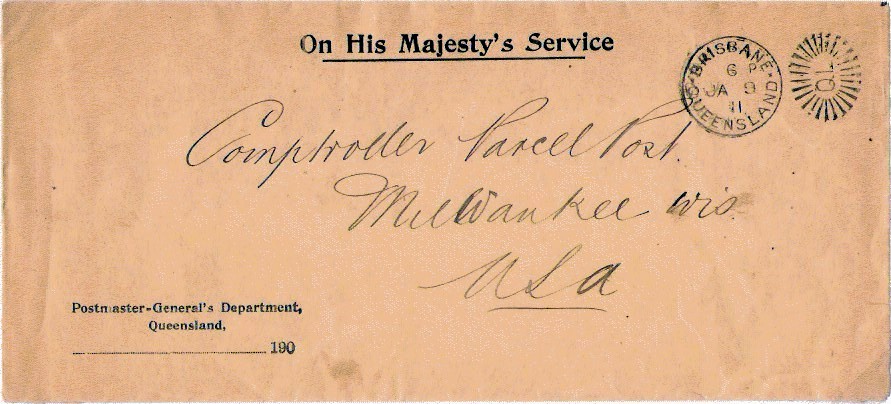 On His Majesty's Service
BRISBANE
6 P
JA 9
11
QUEENSLAND
QL
Comptroller Parcel Post.
Milwaukee Wis.
USA
Postmaster-General's Department,
Queensland,
190